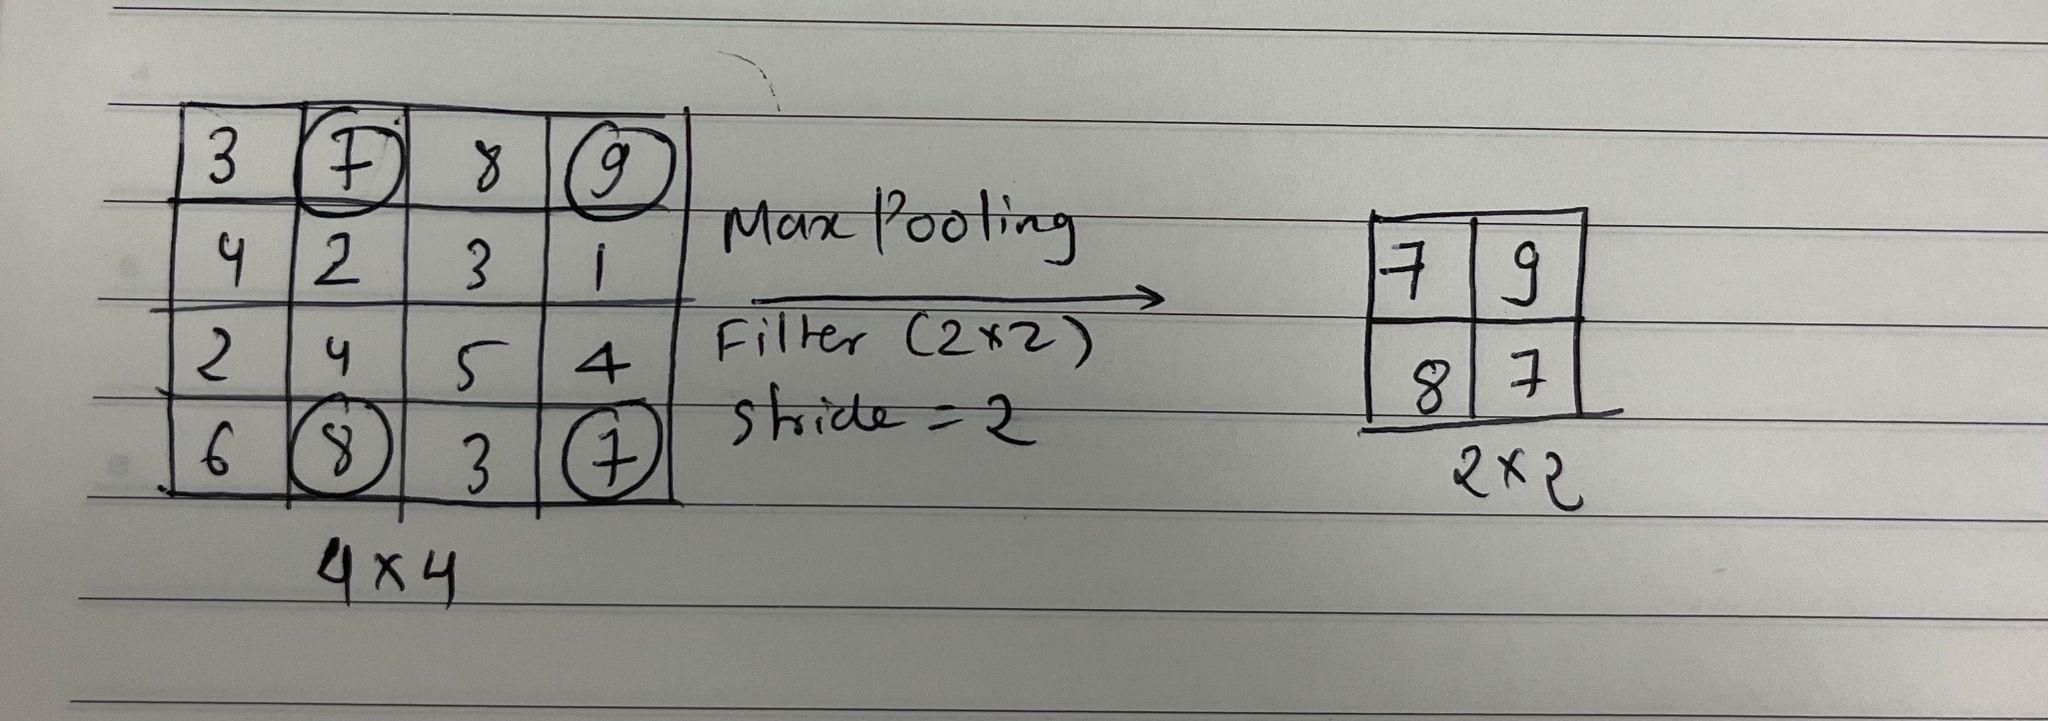 3 7 8 9
4 2 3 1
2 4 5 4
6 8 3 7
4×4
Max Pooling
Filter (2×2)
stride = 2
7 9
8 7
2×2